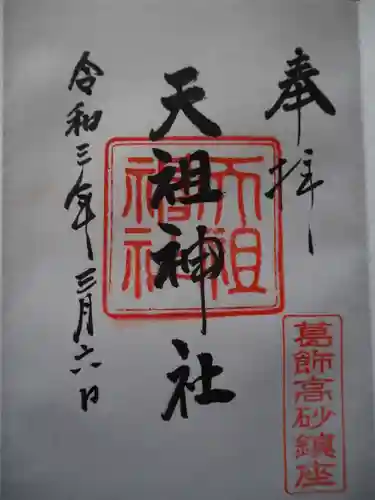 奉拝
葛飾高砂鎮座
天祖神社
天祖神社
令和三年三月六日